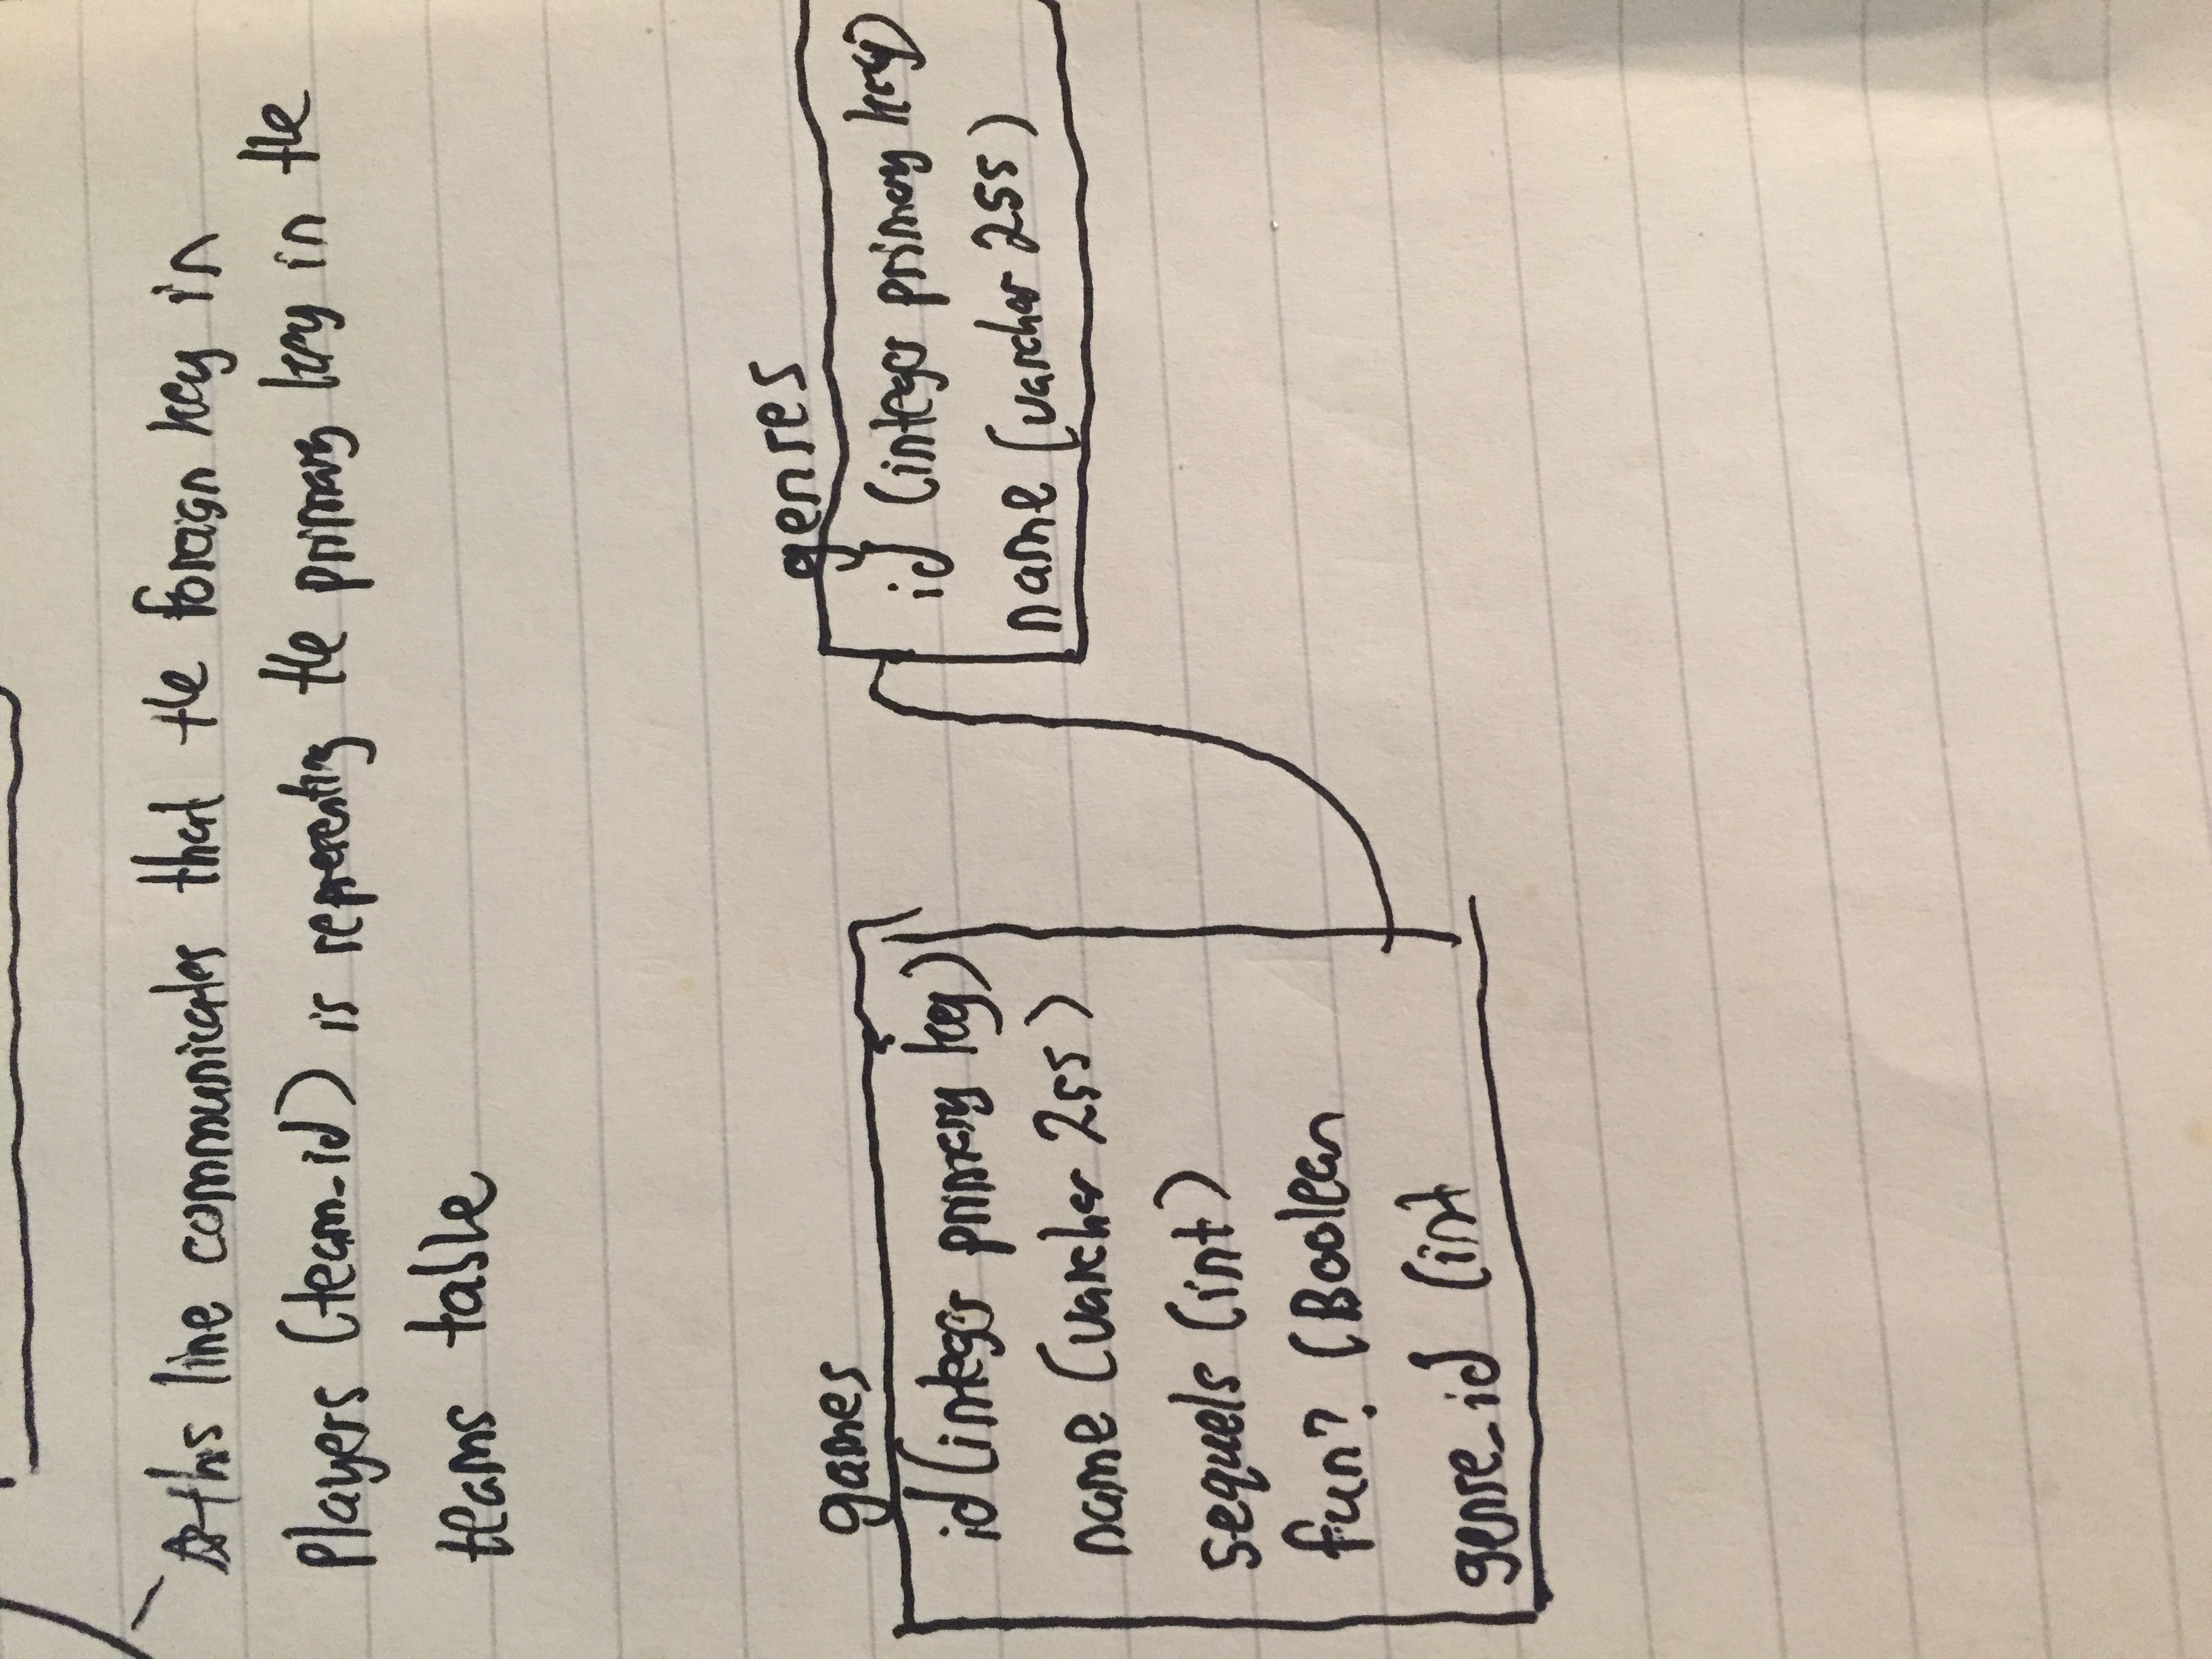 this line communicates that the foreign key in
Players (team_id) is representing the primary key in the
teams table
games
id (integer primary key)
name (varchar 255)
sequels (int)
fun? (Boolean
genre_id (int
genres
id (integer primary key)
name (varchar 255)